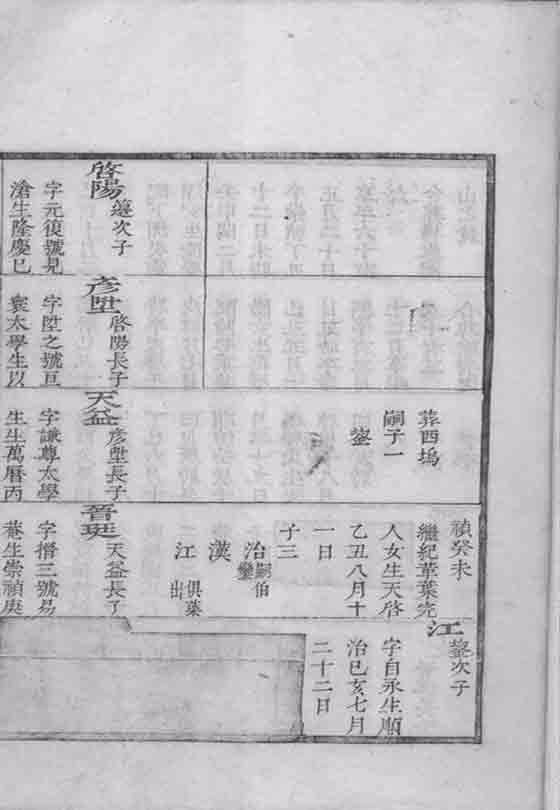 啓陽 次子
字元復號見
滄生隆慶巳
彥陞 啓陽長子
字陞之號亘
寰太學生以
葬西塢
嗣子一
鋆
天益 彥陞長子
字謙尊太學
生生萬曆丙
禎癸未
繼紀葉完
人女生天啓
乙丑八月十
一日
子三
治 嗣伯鑾
漢
江 俱葉出
晉珽 天益長子
字搢三號易
菴生崇禎庚
江 鋆次子
字自永生順
治巳亥七月
二十二日